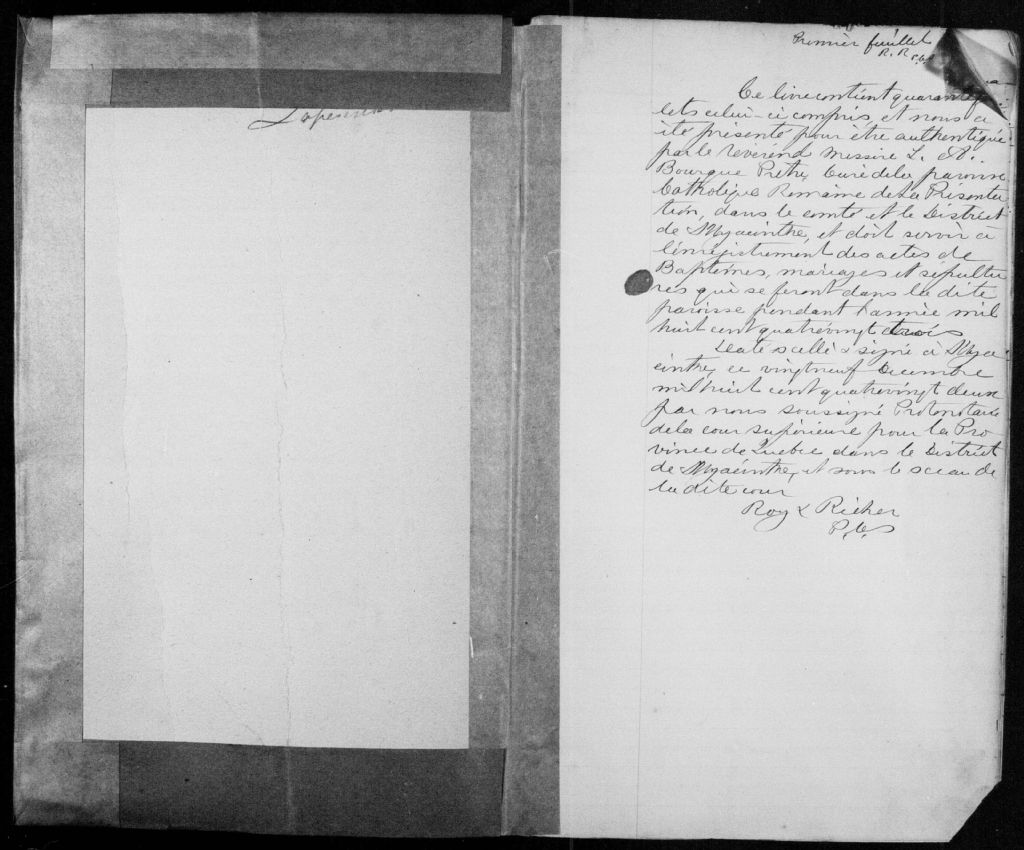 Premier feuillet
R. R
Ce livre contient quarante
lets celui-ci compris, et nous a
été présenté pour être authentiqué
par le reverend Messire L. A.
Bourque Prêtre, Curé de la paroisse
Catholique Romaine de La Présenta
tion, dans le comté et le District
de St Hyacinthe, et doit servir à
l'enregistrement des actes de
Baptêmes, mariages et sépultu
res qui se feront dans la dite
paroisse pendant l'année mil
huit cent quatrevingt trois
Daté scellé & signé à St Hya
cinthe, ce vingtneuf Decembre
mil huit cent quatrevingt deux
par nous soussigné Protonotaire
de la cour supérieure pour la Pro
vince de Quebec dans le District
de St Hyacinthe, et sous le sceau de
la dite cour
Roy & Richer
P.C.S